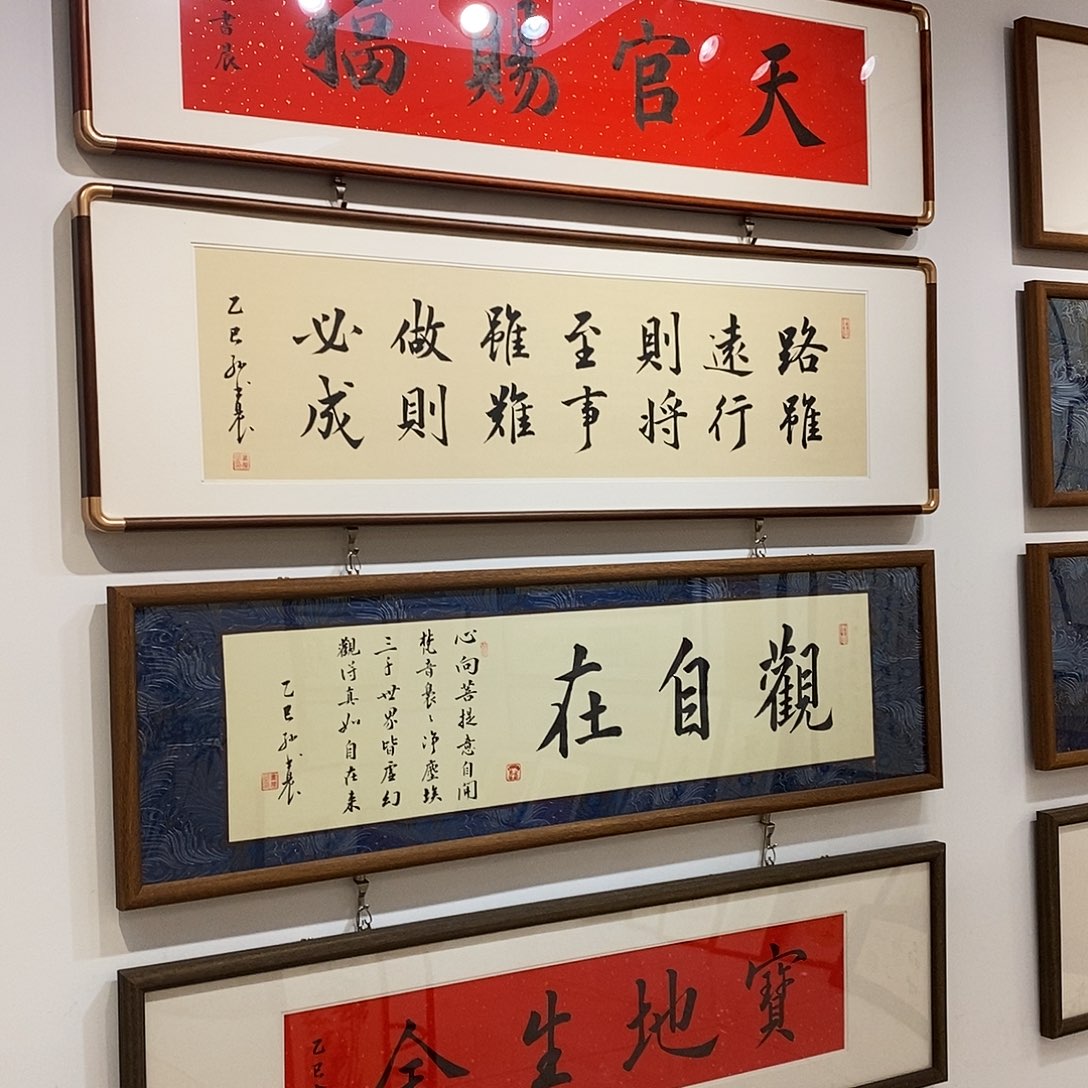 天官賜福
路雖
遠行
則將
至事
雖難
做則
必成
乙巳
觀自在
心向菩提意自開
梵音裊〻净塵埃
三千世界皆虛幻
觀得真如自在来
乙巳
寶地生金
乙巳